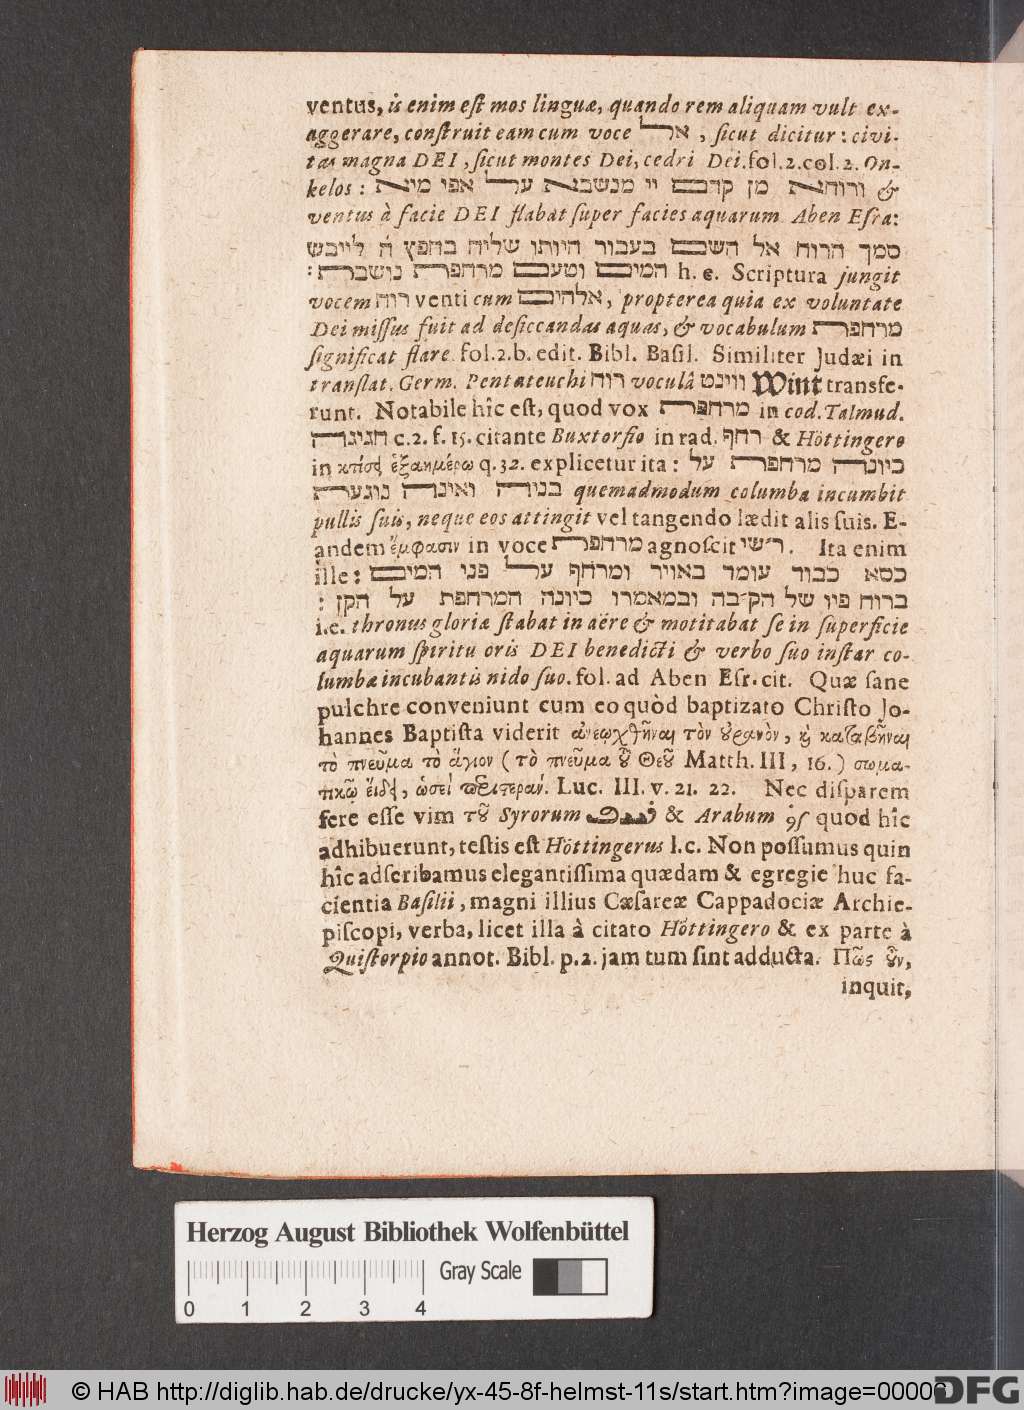 ventus, is enim eſt mos linguæ, quando rem aliquam vult ex-
aggerare, conſtruit eam cum voce אל, ſicut dicitur: civi-
tas magna DEI, ſicut montes Dei, cedri Dei. fol. 2. col. 2. On-
kelos: ורוחא מן קדם יי מנשבא על אפי מיא &
ventus à facie DEI flabat ſuper facies aquarum Aben Eſra:
סמך הרוח אל השם בעבור היותו שליח בחפץ ה׳ לייבש
המים וטעם מרחפת נושבת: h. e. Scriptura jungit
vocem רוח venti cum אלהים, propterea quia ex voluntate
Dei miſſus fuit ad deſiccandas aquas, & vocabulum מרחפת
ſignificat flare. fol. 2. b. edit. Bibl. Baſil. Similiter Judæi in
tranſlat. Germ. Pentateuchi רוח voculâ ווינט Wint transfe-
runt. Notabile hîc eſt, quod vox מרחפת in cod. Talmud.
חגיגה c. 2. f. 15. citante Buxtorfio in rad. רחף & Höttingero
in κτίσῃ ἑξαημέρῳ q. 32. explicetur ita: כיונה מרחפת על
בניה ואינה נוגעת quemadmodum columba incumbit
pullis ſuis, neque eos attingit vel tangendo lædit alis ſuis. E-
andem ἔμφασιν in voce מרחפת agnoſcit רש״י. Ita enim
ille: כסא כבוד עומד באויר ומרחף על פני המים
ברוח פיו של הק״בה ובמאמרו כיונה המרחפת על הקן:
i. e. thronus gloriæ ſtabat in aëre & motitabat ſe in ſuperficie
aquarum ſpiritu oris DEI benedicti & verbo ſuo inſtar co-
lumbæ incubantis nido ſuo. fol. ad Aben Eſr. cit. Quæ ſane
pulchre conveniunt cum eo quòd baptizato Chriſto Jo-
hannes Baptiſta viderit ἀνεῳχθῆναι τὸν ὀρανὸν, ϗ καταβῆναι
τὸ πνεῦμα τὸ ἅγιον (τὸ πνεῦμα ȣ͂ Θεȣ͂ Matth. III, 16.) σωμα-
τικῷ εἴδει, ὡσεὶ περιστεράν. Luc. III. v. 21. 22. Nec diſparem
fere eſſe vim τȣ͂ Syrorum & Arabum quod hîc
adhibuerunt, teſtis eſt Höttingerus l. c. Non poſſumus quin
hîc adſcribamus elegantiſſima quædam & egregie huc fa-
cientia Baſilii, magni illius Cæſareæ Cappadociæ Archie-
piſcopi, verba, licet illa à citato Höttingero & ex parte à
Quiſtorpio annot. Bibl. p. 2. jam tum ſint adducta. Πῶς ȣ͂ν,
inquit,
Herzog August Bibliothek Wolfenbüttel
Gray Scale
0 1 2 3 4
© HAB http://diglib.hab.de/drucke/yx-45-8f-helmst-11s/start.htm?image=00006
DFG